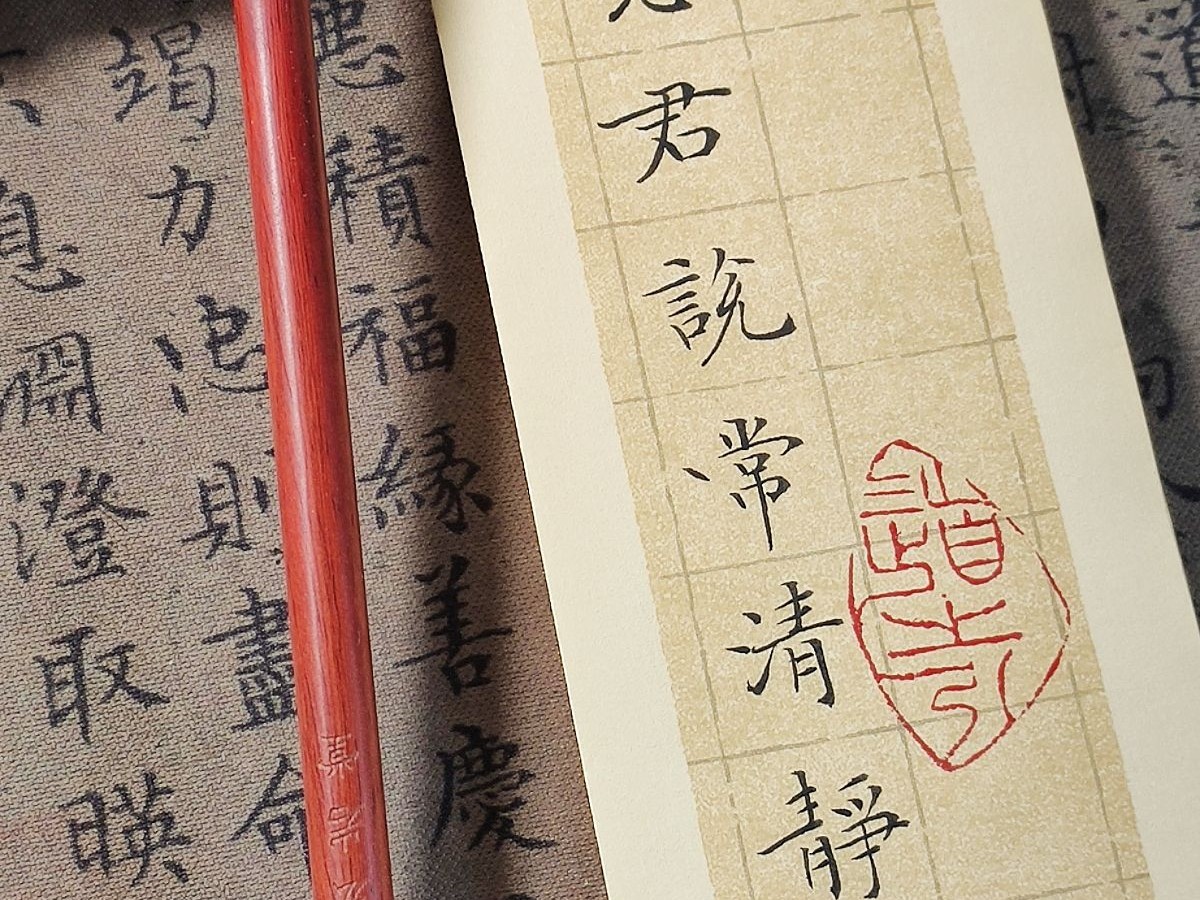 君說常清靜
惡積福緣善慶
竭力忠則盡命
息淵澄取暎